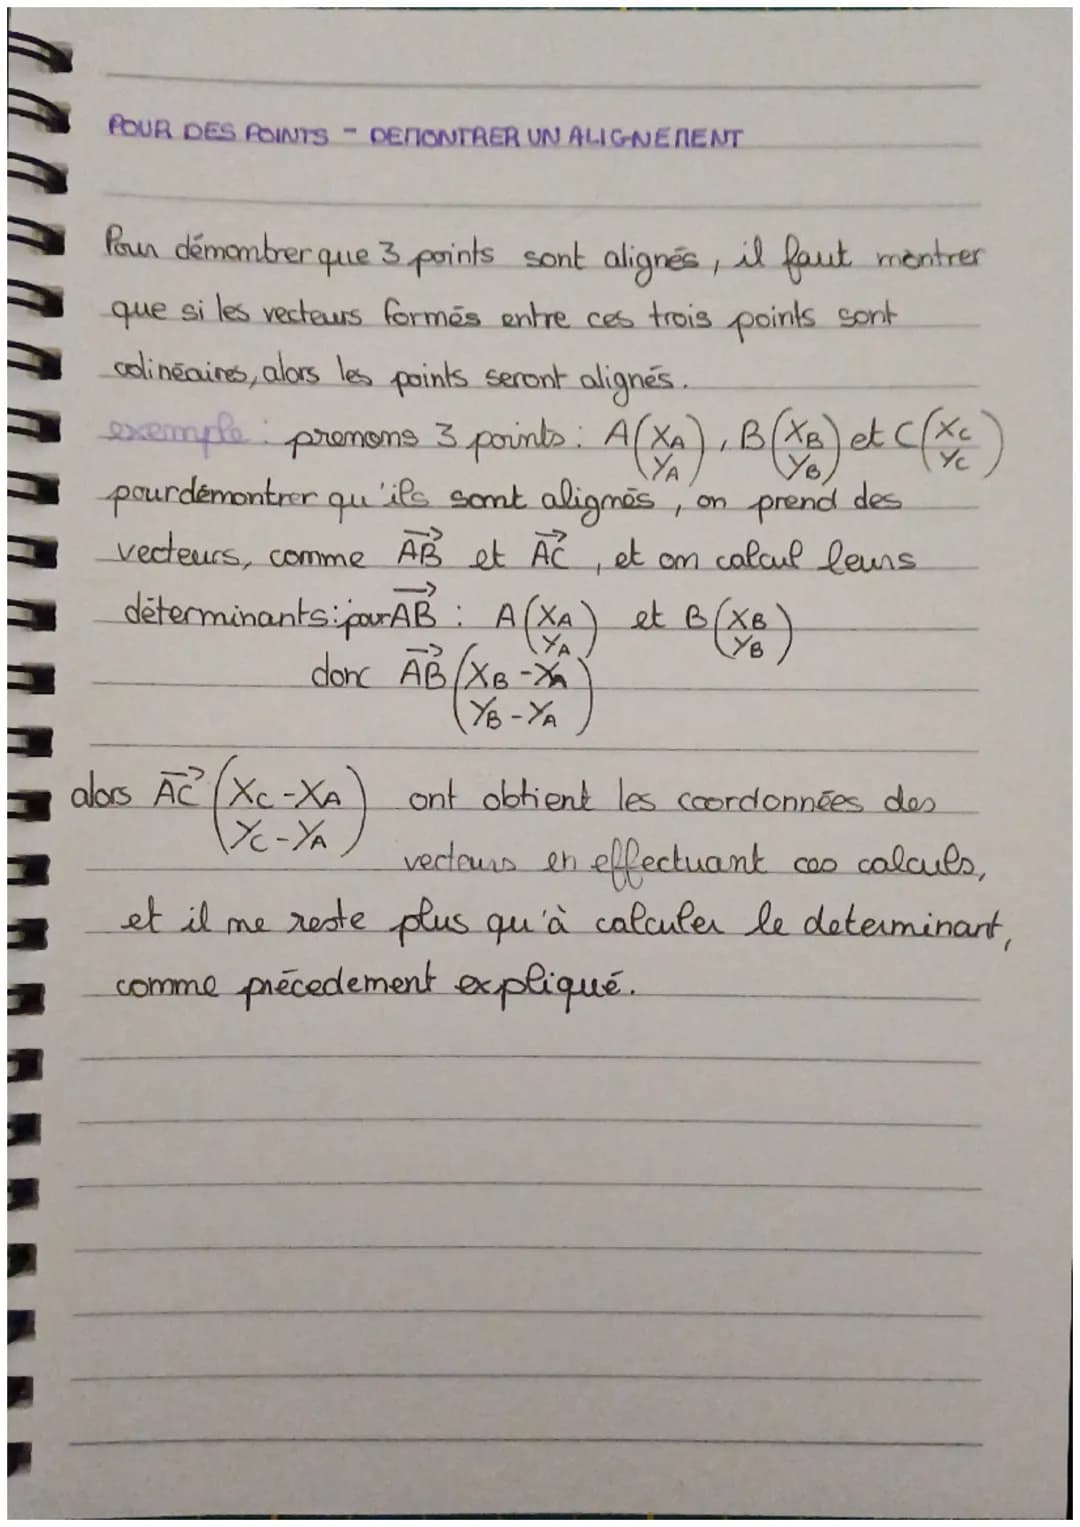 POUR DES POINTS - DEMONTRER UN ALIGNEMENT
Pour démontrer que 3 points sont alignés, il faut montrer
que si les vecteurs formés entre ces trois points sont
colinéaires, alors les points seront alignés.
exemple : prenons 3 points : A(XA YA), B(XB YB) et C(XC YC)
pour démontrer qu'ils sont alignés, on prend des
vecteurs, comme AB→ et AC→, et on calcul leurs
déterminants : pour AB→ : A(XA YA) et B(XB YB)
donc AB→(XB - XA YB - YA)
alors AC→(XC - XA YC - YA) ont obtient les coordonnées des
vecteurs en effectuant ces calculs,
et il ne reste plus qu'à calculer le determinant,
comme précedement expliqué.